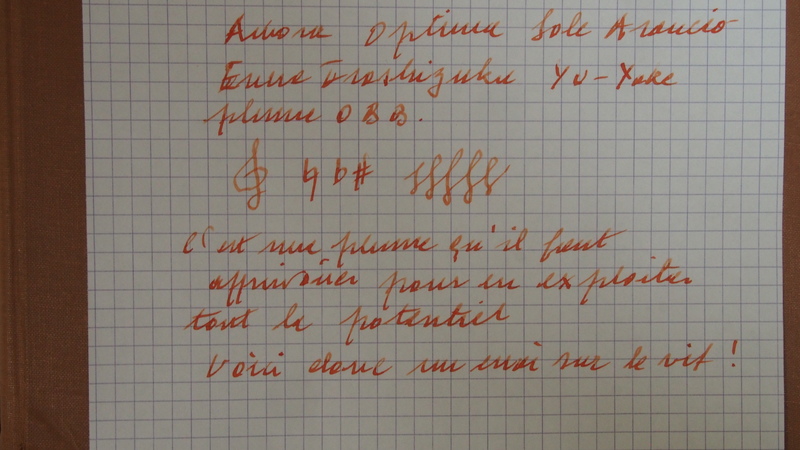 Aurora Optima Sole Arancio
Encre Iroshizuku Yu-Yake
plume OBB.
♮ ♭ #
C'est une plume qu'il faut
apprivoiser pour en exploiter
tout le potentiel
Voici donc un essai sur le vif !